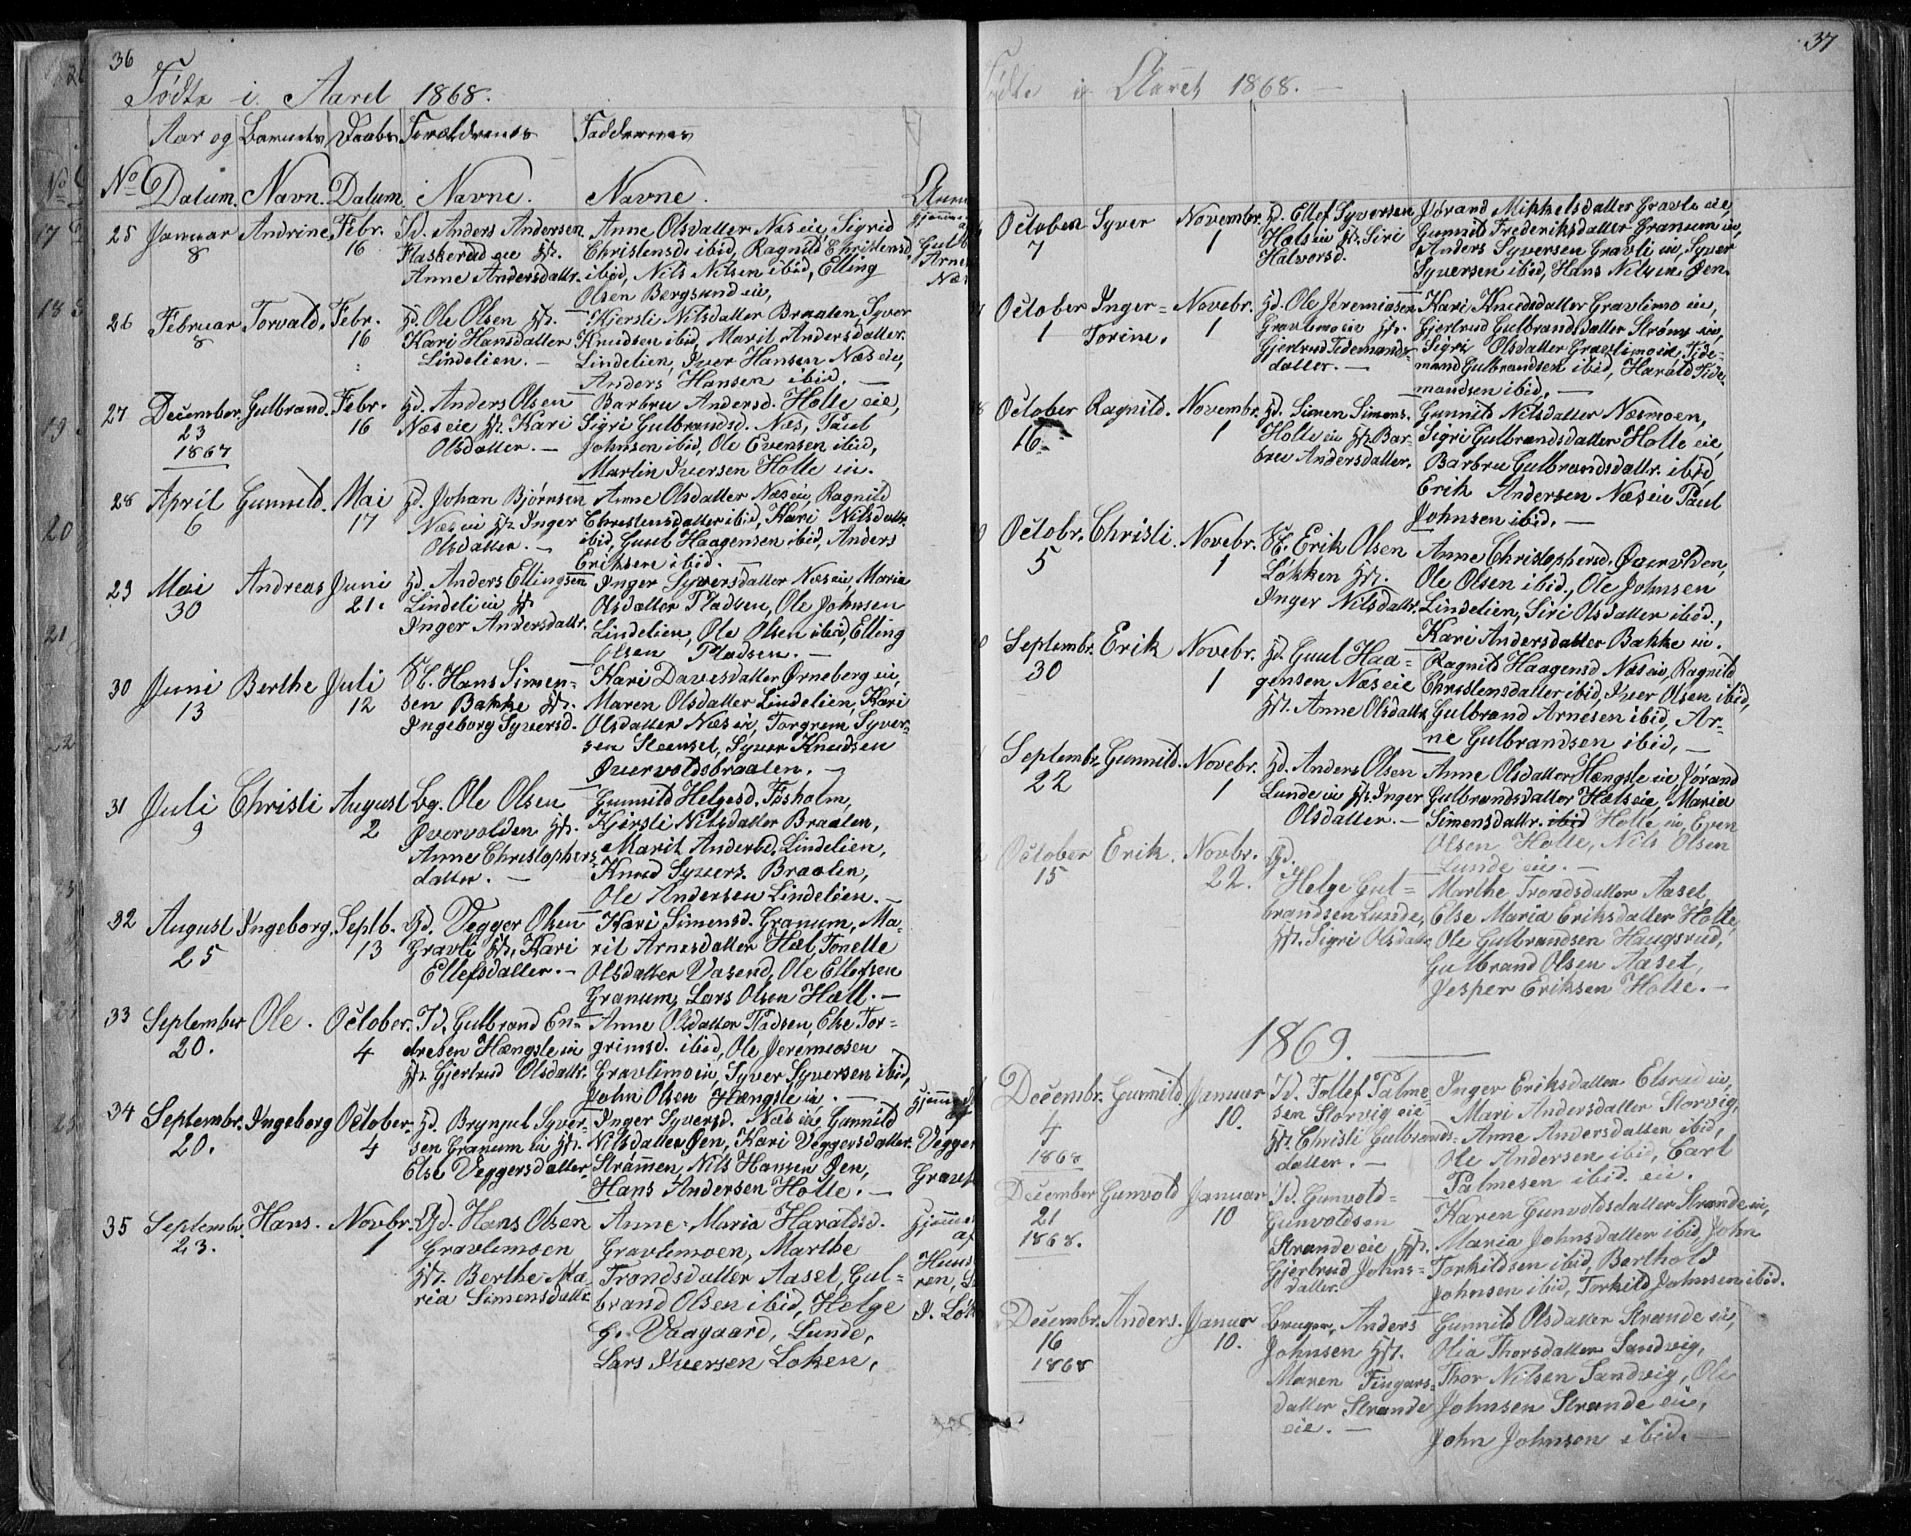 36
Fødte i Aaret 1868.
Aar og Barnets Daabs Forældrenes Faddernes
No Datum. Navn. Datum. Navne. Navne.
25 Januar 8 Andrine, Febr. 16
Anders Andersen
Flaskerud eie
Anne Andersdattr.
Anne Olsdatter Næs eie, Sigrid
Christensd. ibid, Ragnild Christensd.
ibid, Nils Nilsen ibid, Elling
Olsen Bergsund eie,
26 Februar 8 Torvald. Febr. 16
Ole Olsen
Kari Hansdatter
Lindelien. —
Kjersti Nilsdatter Braaten, Syver
Knudsen ibid, Marit Andersdatter
Lindelien, Iver Hansen Næs eie,
Anders Hansen ibid. —
27 December 23 1867 Gulbrand. Febr. 16
Anders Olsen
Næs eie Kari
Olsdatter. —
Barbru Andersd. Holte eie,
Sigri Gulbrandsd. Næs, Paul
Johnsen ibid, Ole Evensen ibid,
Martin Iversen Holte eie.
28 April 6 Gunnild. Mai 17
Johan Bjørnsen
Næs eie Inger
Olsdatter. —
Anne Olsdatter Næs eie, Ragnild
Christensdatter ibid, Kari Nilsdattr.
ibid, Guul Haagensen ibid, Anders
Eriksen ibid. —
29 Mai 30 Andreas Juni 21.
Anders Ellingsen
Lindeli eie
Inger Andersdattr.
Inger Syversdatter Næs eie, Maria
Olsdatter Pladsen, Ole Johnsen
Lindelien, Ole Olsen ibid, Elling
Olsen Pladsen. —
30 Juni 13 Berthe Juli 12
Hans Simen-
sen Bakke
Ingeborg Syversd.
Kari Davidsdatter Ørneberg eie,
Maren Olsdatter Lindelien, Kari
Olsdatter Næs eie, Torgrim Syver-
sen Steenset, Syver Knudsen
Øvervoldsbraaten. —
31 Juli 9 Christi August 2
Ole Olsen
Øvervolden
Anne Christophers
datter. —
Gunnild Helgesd. Fosholm,
Kjersti Nilsdatter Braaten,
Marit Andersd. Lindelien,
Knud Syvers. Braaten,
Ole Andersen Lindelien. —
32 August 25 Ingeborg. Septb. 13
Vegger Olsen
Gravli Kari
Ellefsdatter. —
Kari Simensd. Granum, Ma-
rit Arnesdatter Hæl, Tonette
Olsdatter Vasend, Ole Ellefsen
Granum, Lars Olsen Hæll. —
33 September 20. Ole. October. 4
Gulbrand En-
dresen Hængsle eie
Gjertrud Olsdattr.
Anne Olsdatter Pladsen, Else Tor-
grimsd. ibid, Ole Jeremiasen
Gravlimo eie, Syver Syversen ibid,
John Olsen Hængsle eie. —
34 Septembr. 20. Ingeborg October. 4
Brynjul Syver-
sen Granum eie
Else Veggersdatter
Inger Syversd. Næs eie, Gunnild
Nilsdatter Øen, Kari Veggersdatter
Strømmen, Nils Hansen Øen,
Hans Andersen Holte. —
Vegger
35 Septembr. 23. Hans. Novbr. 1
Gd. Hans Olsen
Gravlimoen
Berthe Ma-
ria Simensdattr.
Anne Maria Haraldsd.
Gravlimoen, Marthe
Trondsdatter Aaset, Gul-
brand Olsen ibid, Helge
G. Vaagaard, Lunde,
Lars Iversen Løken,
37
Fødte i Aaret 1868. —
October 7 Syver Novembr. 1
Ellef Syversen
Hæls eie Siri
Halvorsd.
Jørand Mikkelsdatter Gravli eie,
Gunnild Frederiksdatter Granum eie,
Anders Syversen Gravli eie, Syver
Syversen ibid, Hans Nilsen Øen.
October 1 Inger-
Torine. Novebr. 1
Ole Jeremiasen
Gravlimo eie
Gjertrud Tidemands-
datter. —
Kari Knudsdatter Gravlimo eie,
Gjertrud Gulbrandsdatter Strøm eie,
Sigri Olsdatter Gravlimo eie, Tide-
mand Gulbrandsen ibid, Harald Tide-
mandsen ibid, —
October 16. Ragnild. Novembr. 1
Simen Simens.
Holte eie Bar-
bru Andersdatter.
Gunnild Nilsdatter Næsmoen,
Sigri Gulbrandsdatter Holte eie,
Barbru Gulbrandsdattr. ibid,
Erik Andersen Næs eie Paul
Johnsen ibid, —
Octobr. 5 Christi. Novebr. 1
Erik Olsen
Løkken
Inger Nilsdattr.
Anne Christophersd. Øvervolden,
Ole Olsen ibid., Ole Johnsen
Lindelien, Siri Olsdatter ibid.,
Kari Andersdatter Bakke eie.
Septembr. 30 Erik Novebr. 1
Guul Haa-
gensen Næs eie
Anne Olsdattr.
Ragnild Haagensd. Næs eie, Ragnild
Christensdatter ibid, Iver Olsen ibid,
Gulbrand Arnesen ibid, Ar-
ne Gulbrandsen ibid, —
Septembr. 22 Gunnild. Novebr. 1
Anders Olsen
Lunde eie Inger
Olsdatter. —
Anne Olsdatter Hængsle eie Jørand
Gulbrandsdatter Hæls eie, Maria
Simensdattr. ibid Holte eie, Even
Olsen Holte, Nils Olsen
Lunde eie. —
October 15 Erik. Novbr. 22.
Gd.
Helge Gul-
brandsen Lunde,
Sigri Olsdattr.
Marthe Trondsdatter Aaset,
Else Maria Eriksdatter Holte,
Ole Gulbrandsen Haugsrud,
Gulbrand Olsen Aaset,
Jesper Eriksen Holte. —
1869. —
Decembr. 4 1868 Gunnild. Januar 10.
Tollef Palme-
sen Storvig eie
Christi Gulbrands-
datter. —
Inger Eriksdatter Elsrud eie,
Mari Andersdatter Storvig,
Anne Andersdatter ibid,
Ole Andersen ibid, Carl
Palmesen ibid. eie.
December 21 1868. Gunvold Januar 10
Gunvold
Gunvoldsen
Strande eie,
Gjertrud Johns-
datter.
Karen Gunvoldsdatter Strande eie,
Maria Johnsdatter ibid, John
Torkildsen ibid, Berthold
Johnsen ibid, Torkild Johnsen ibid.
Decembr. 16 1868 Anders. Januar 10.
Bruger, Anders
Johnsen
Maren Fingars-
datter Strande
eie. —
Gunnild Olsdatter Strande eie,
Olia Thorsdatter Sandvig,
Thor Nilsen Sandvig, Ole
Johnsen Strande eie,
John Johnson ibid. —